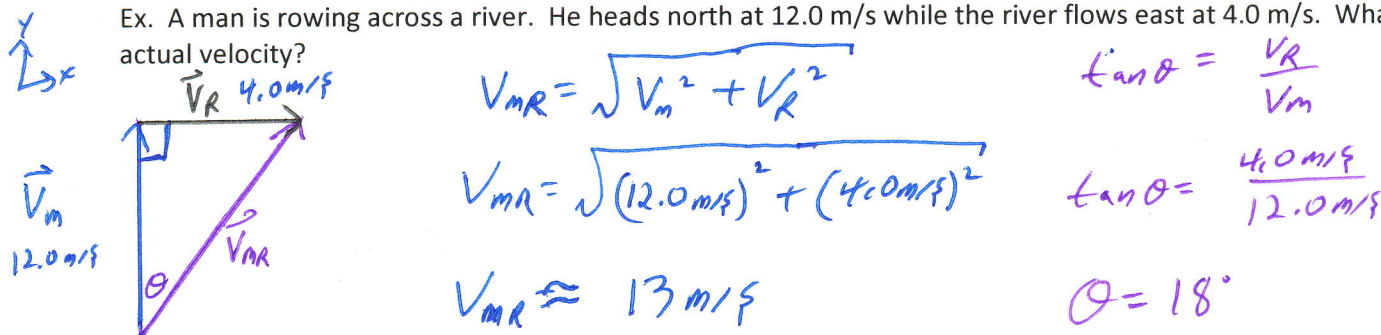 Ex. A man is rowing across a river. He heads north at 12.0 m/s while the river flows east at 4.0 m/s.
actual velocity?
Y
x
V⃗R 4.0 m/s
V⃗m
12.0 m/s
θ
V⃗mR
VmR = √(Vm² + VR²)
VmR = √((12.0 m/s)² + (4.0 m/s)²)
VmR ≈ 13 m/s
tan θ = VR / Vm
tan θ = 4.0 m/s / 12.0 m/s
θ = 18°